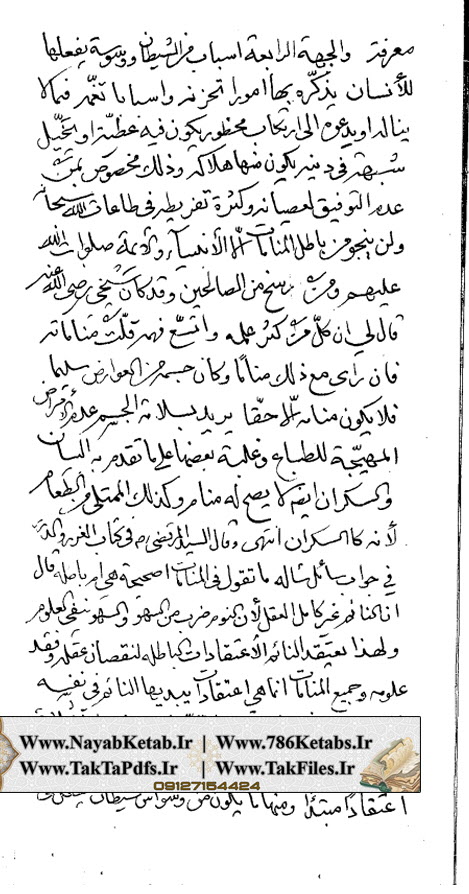 معرفته والجهة الرابعة اسباب من الشيطان ووسوسة يفعلها
للأنسان يذكّره بها امورا تحزنه واسبابا تغمّه فيما لا
يناله او يدعوه الى ارتكاب محظور يكون فيه عطبه او تخيّل
شبهة في دينه يكون منها هلاكه وذلك مخصوص بمن
عدم التوفيق لعصيانه وكثرة تفريطه في طاعات الله سبحانه
ولن ينجو من باطل المنامات الّا الأنبياء والأئمة صلوات الله
عليهم ومن رسخ من الصالحين وقد كان شيخي رضي الله عنه
قال لي ان كلّ من كثر علمه واتسع فهمه قلّت مناماته
فان رأى مع ذلك مناما وكان جسمه من العوارض سليما
فلا يكون منامه الّا حقا يريد بسلامة الجسم عدم الأمراض
المهيّجة للطباع وغلبة بعضها على ما تقدم به البيان
والسكران ايضا لا يصح له منام وكذلك الممتلي من الطعام
لأنه كالسكران انتهى وقال السيد المرتضى ره في كتاب الغرر والدرر
في جواب سائل سأله ما تقول في المنامات اصحيحة هي ام باطلة قال
ان النائم غير كامل العقل لأن النوم ضرب من السهو والسهو ينفى العلوم
ولهذا يعتقد النائم الأعتقادات الباطلة لنقصان عقله وفقد
علومه وجميع المنامات انما هي اعتقادات يبتديها النائم في نفسه
Www.NayabKetab.Ir | Www.786Ketabs.Ir
Www.TakTaPdfs.Ir | Www.TakFiles.Ir
09127154424
اعتقادا مبتدأ ومنها ما يكون من وسواس شيطان